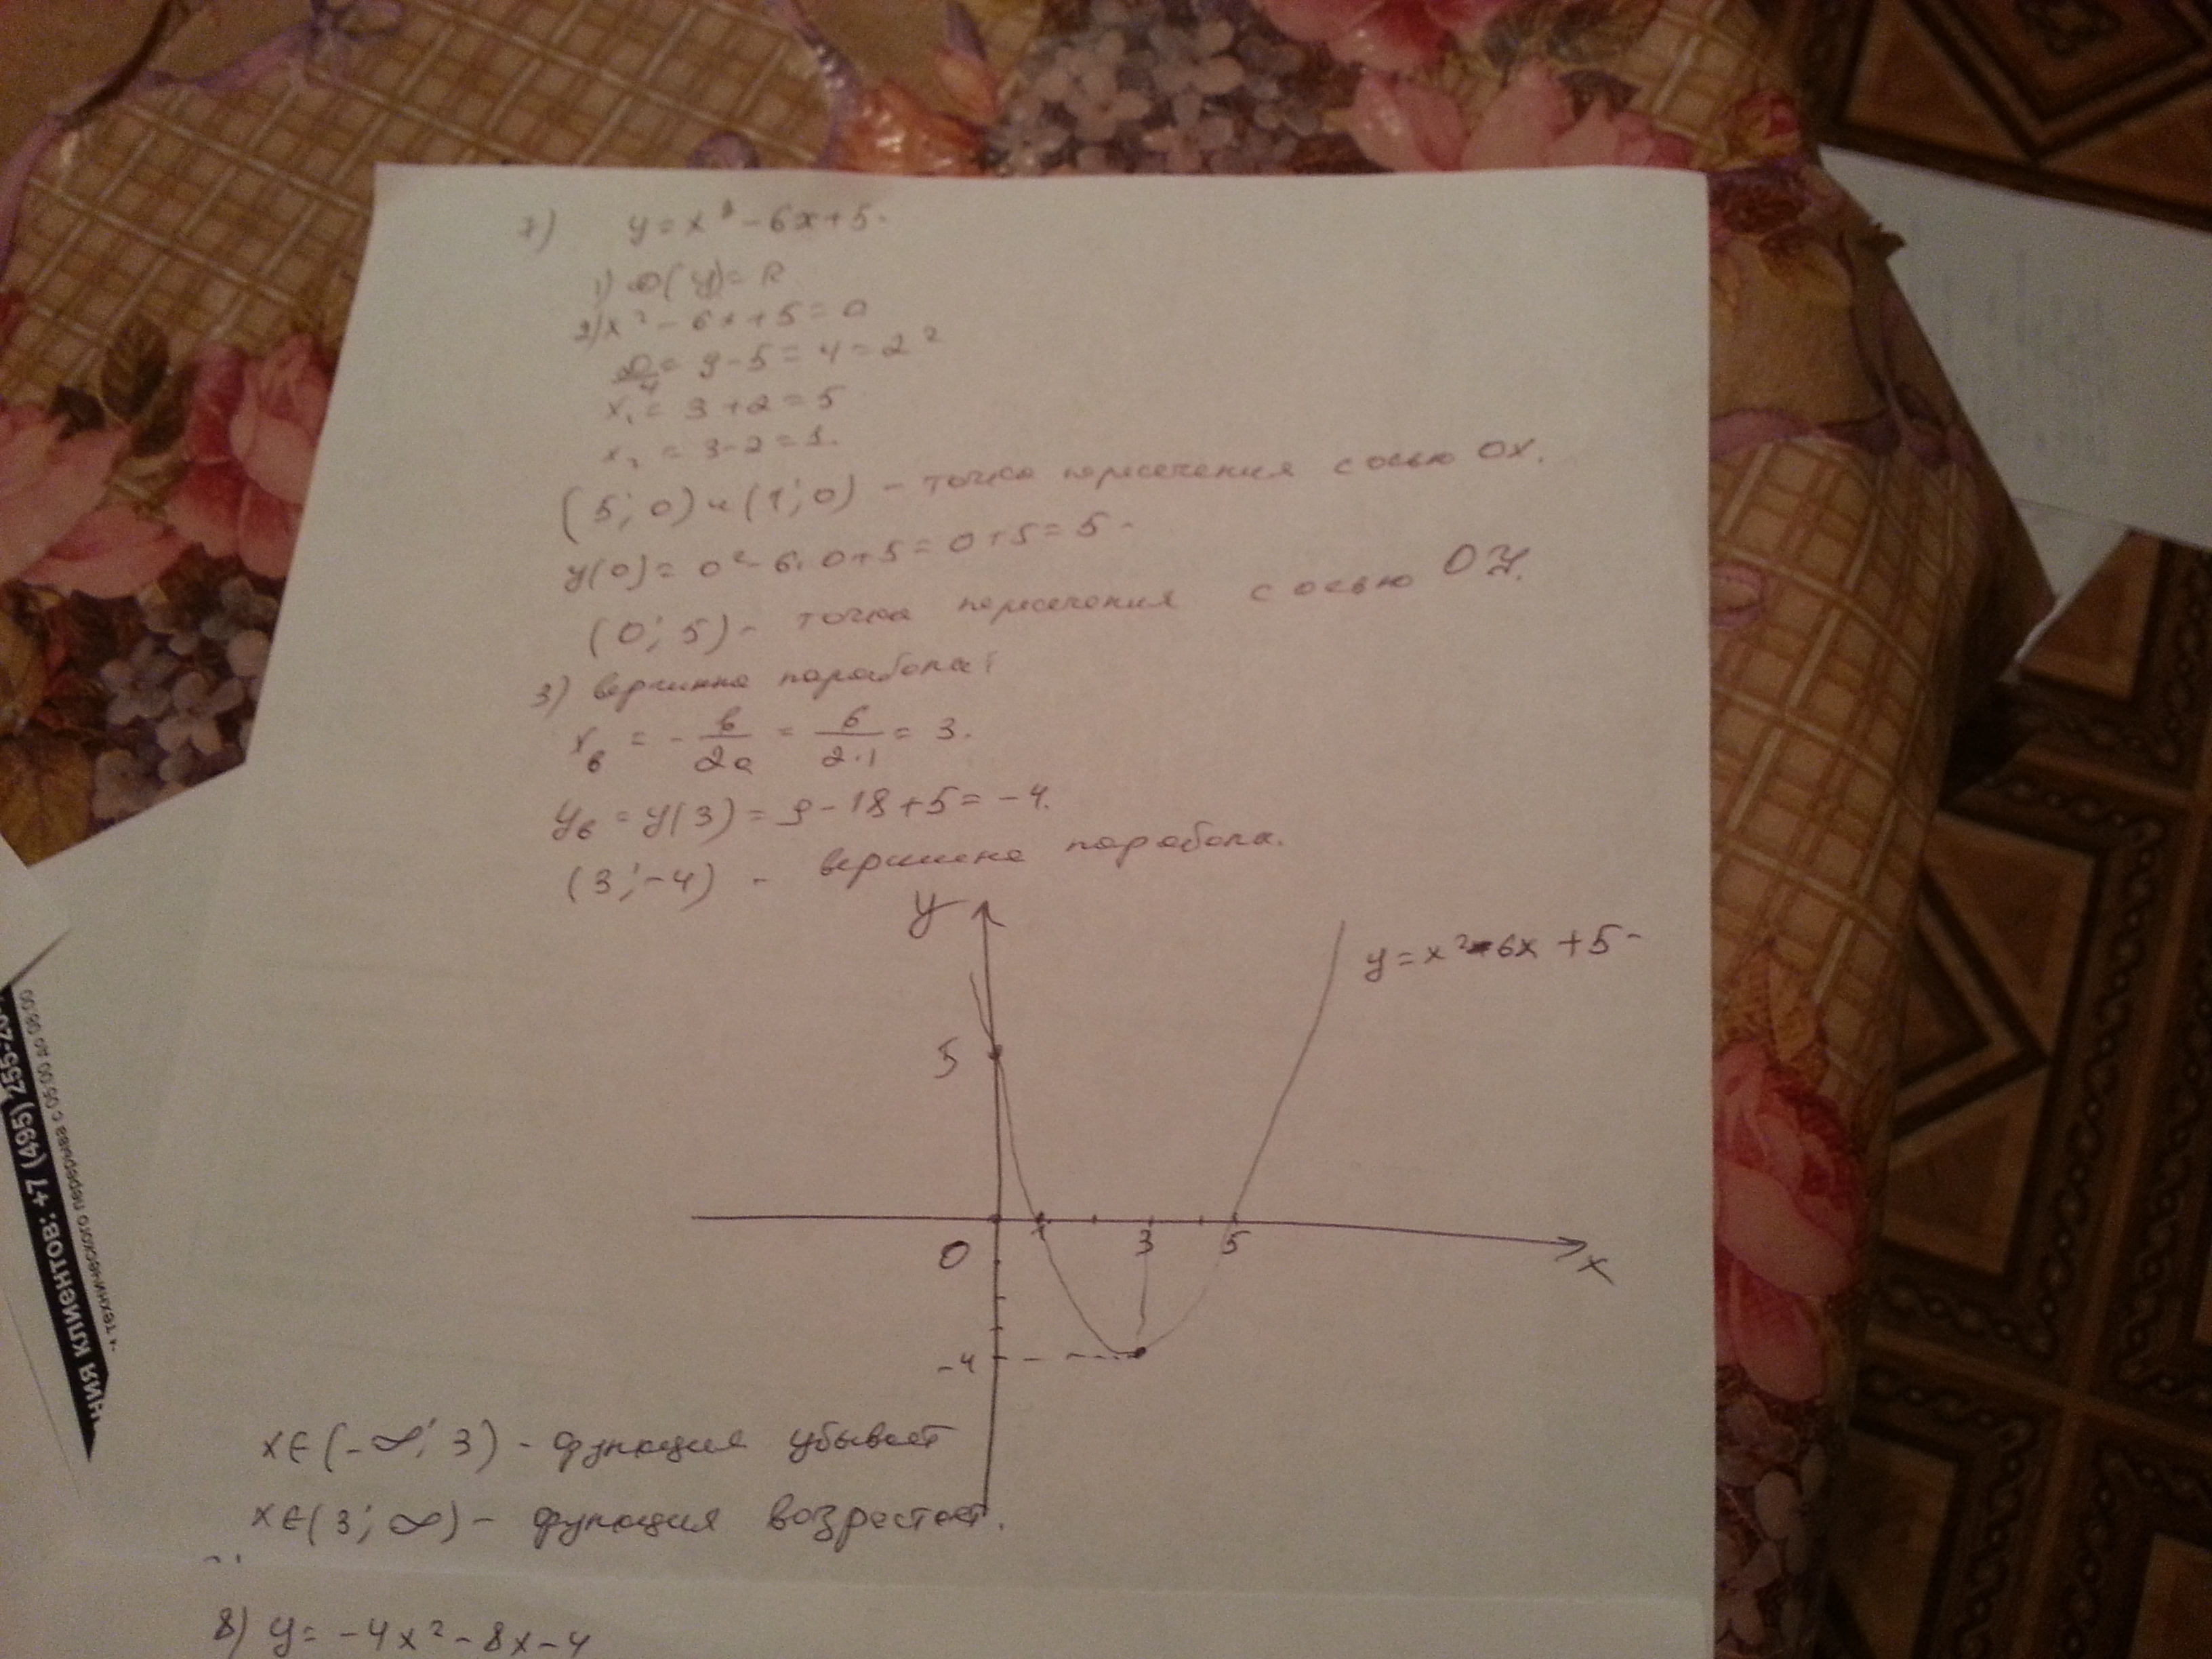 7) y = x² - 6x + 5.
1) D(y) = R
2) x² - 6x + 5 = 0
D/4 = 9 - 5 = 4 = 2²
x₁ = 3 + 2 = 5
x₂ = 3 - 2 = 1.
(5; 0) и (1; 0) - точка пересечения с осью OX.
y(0) = 0² - 6·0 + 5 = 0 + 5 = 5.
(0; 5) - точка пересечения с осью OY.
3) вершина парабола:
xв = - в/2a = 6/2·1 = 3.
yв = y(3) = 9 - 18 + 5 = -4.
(3; -4) - вершина парабола.
y
y = x² - 6x + 5
5
0 1 3 5 x
-4
x∈(-∞; 3) - функция убывает
x∈(3; ∞) - функция возрастает.
8) y = -4x² - 8x - 4
ния клиентов: +7 (495) 255-20-
технического перерыва с 05:00 до 08:00